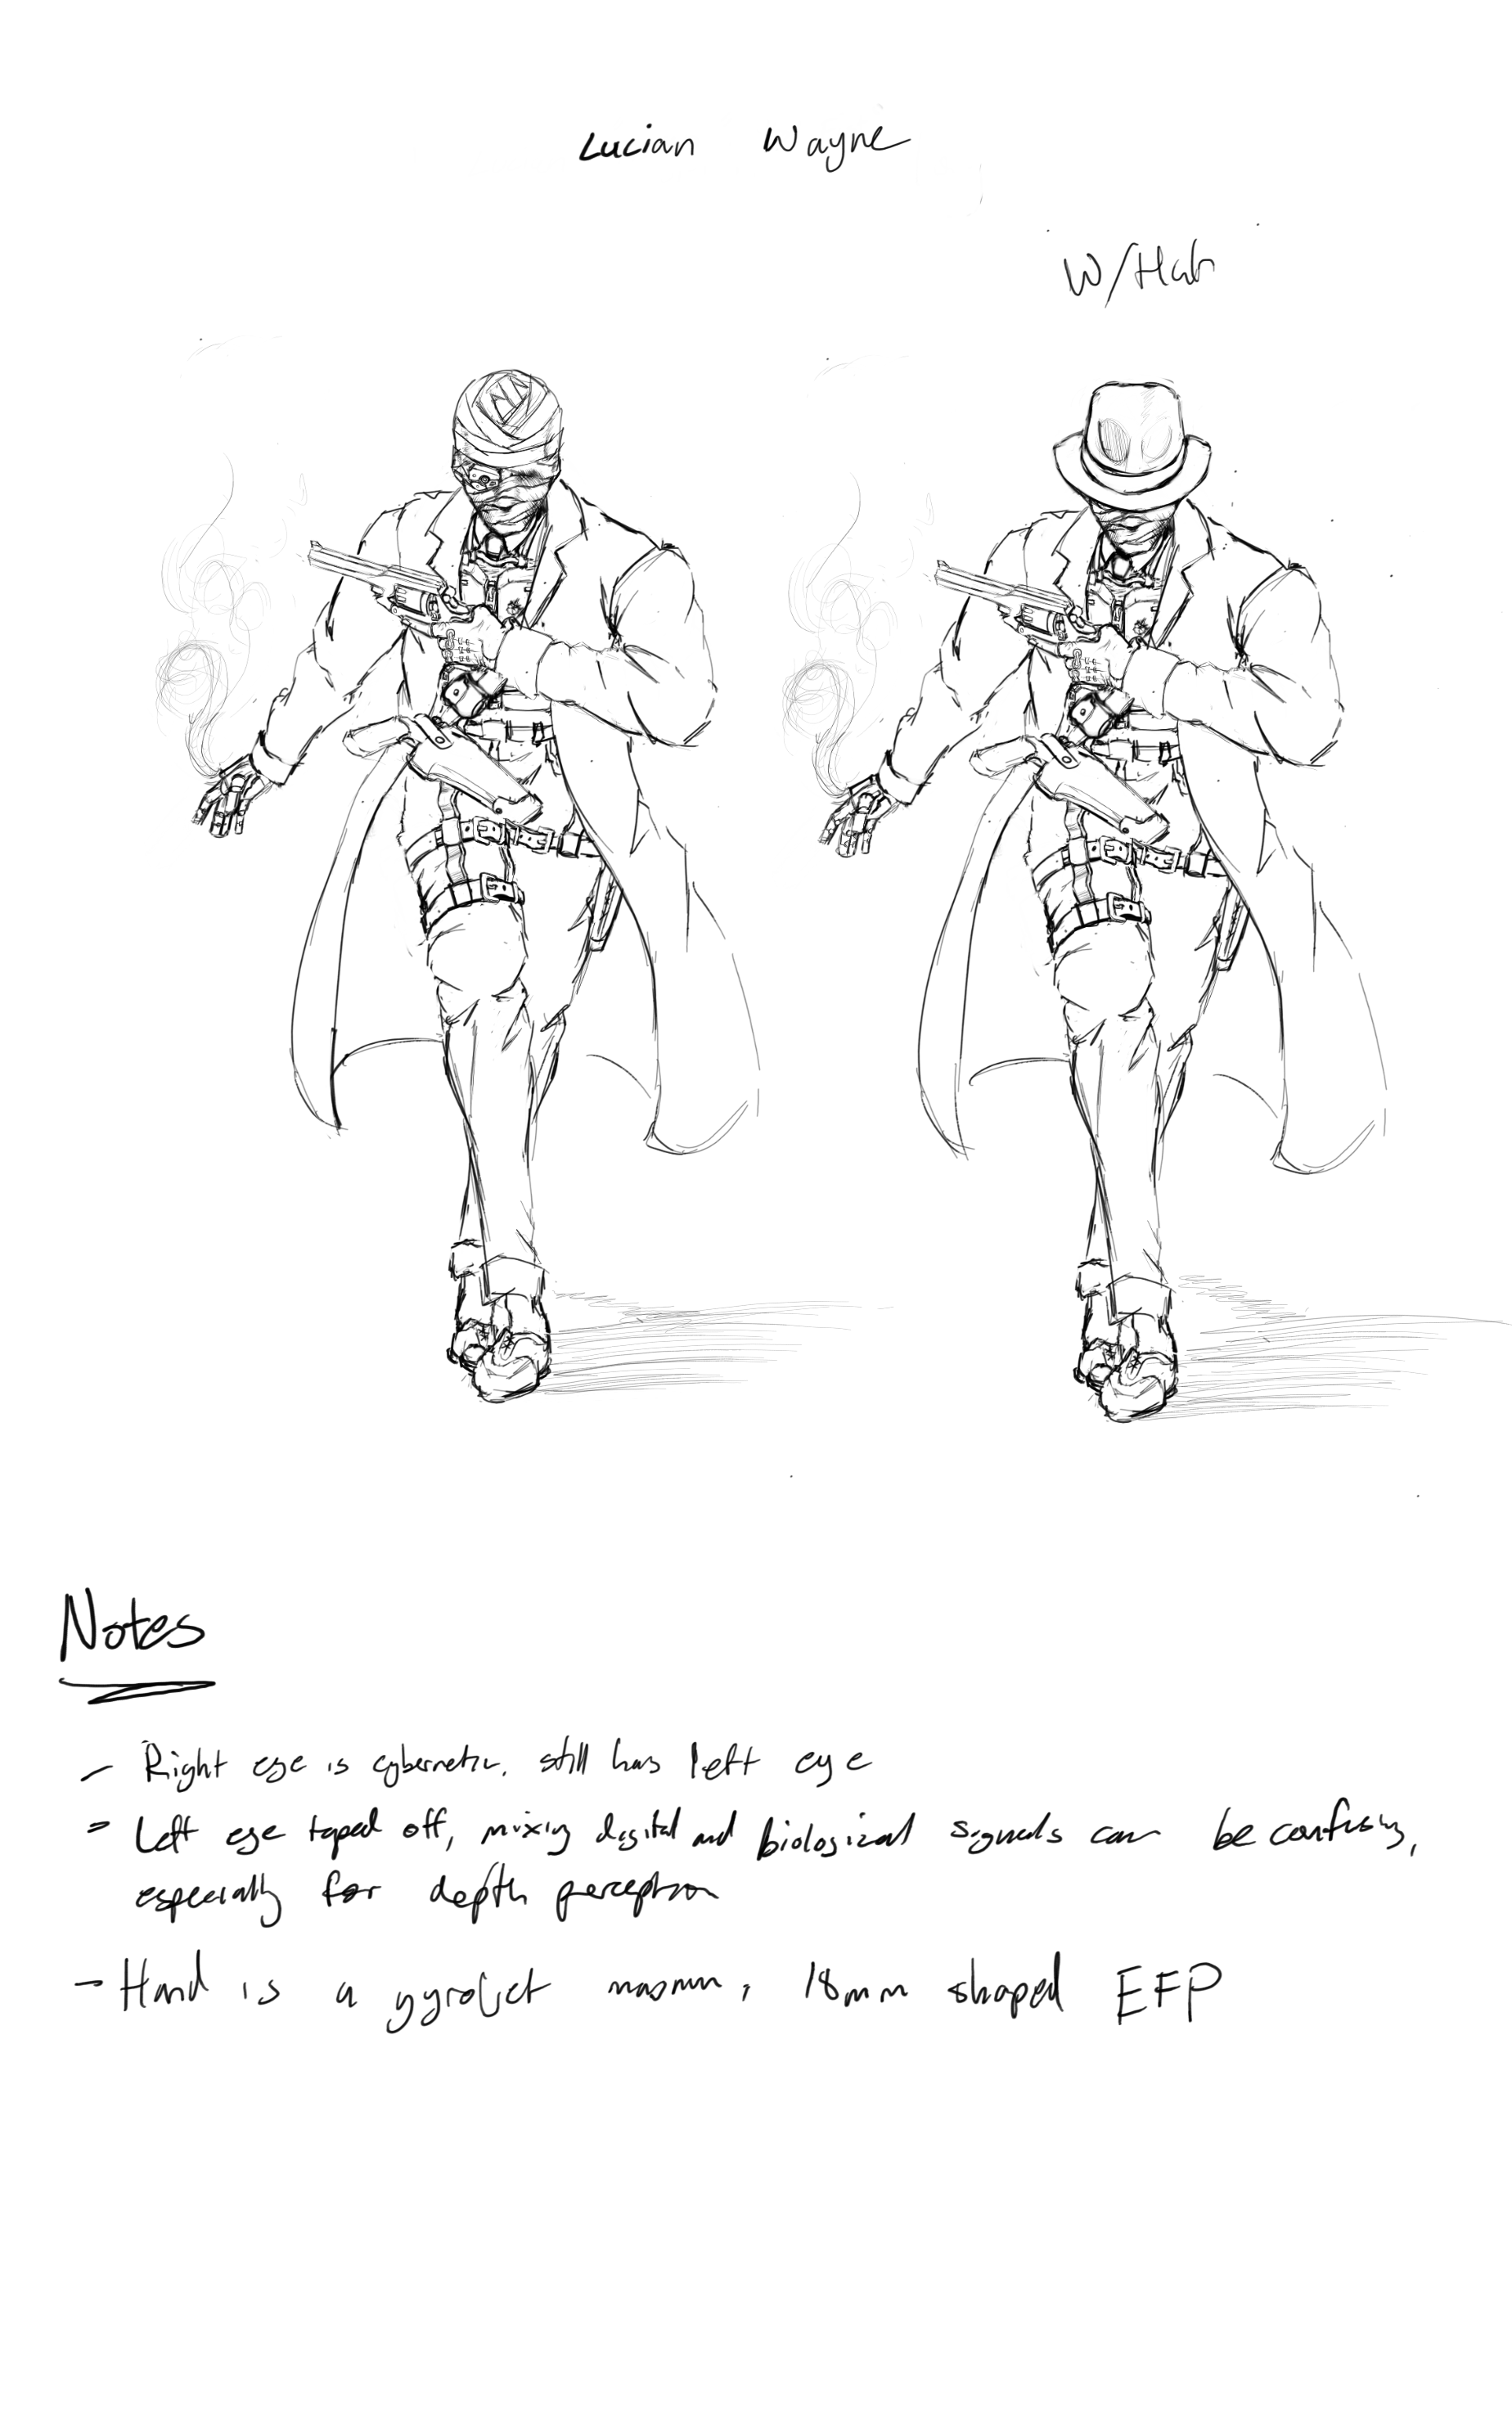 Lucian Wayne
W/Hat
Notes
- Right eye is cybernetic, still has left eye
- Left eye taped off, mixing digital and biological signals can be confusing,
especially for depth perception
- Hand is a gyrojet, 18mm shaped EFP